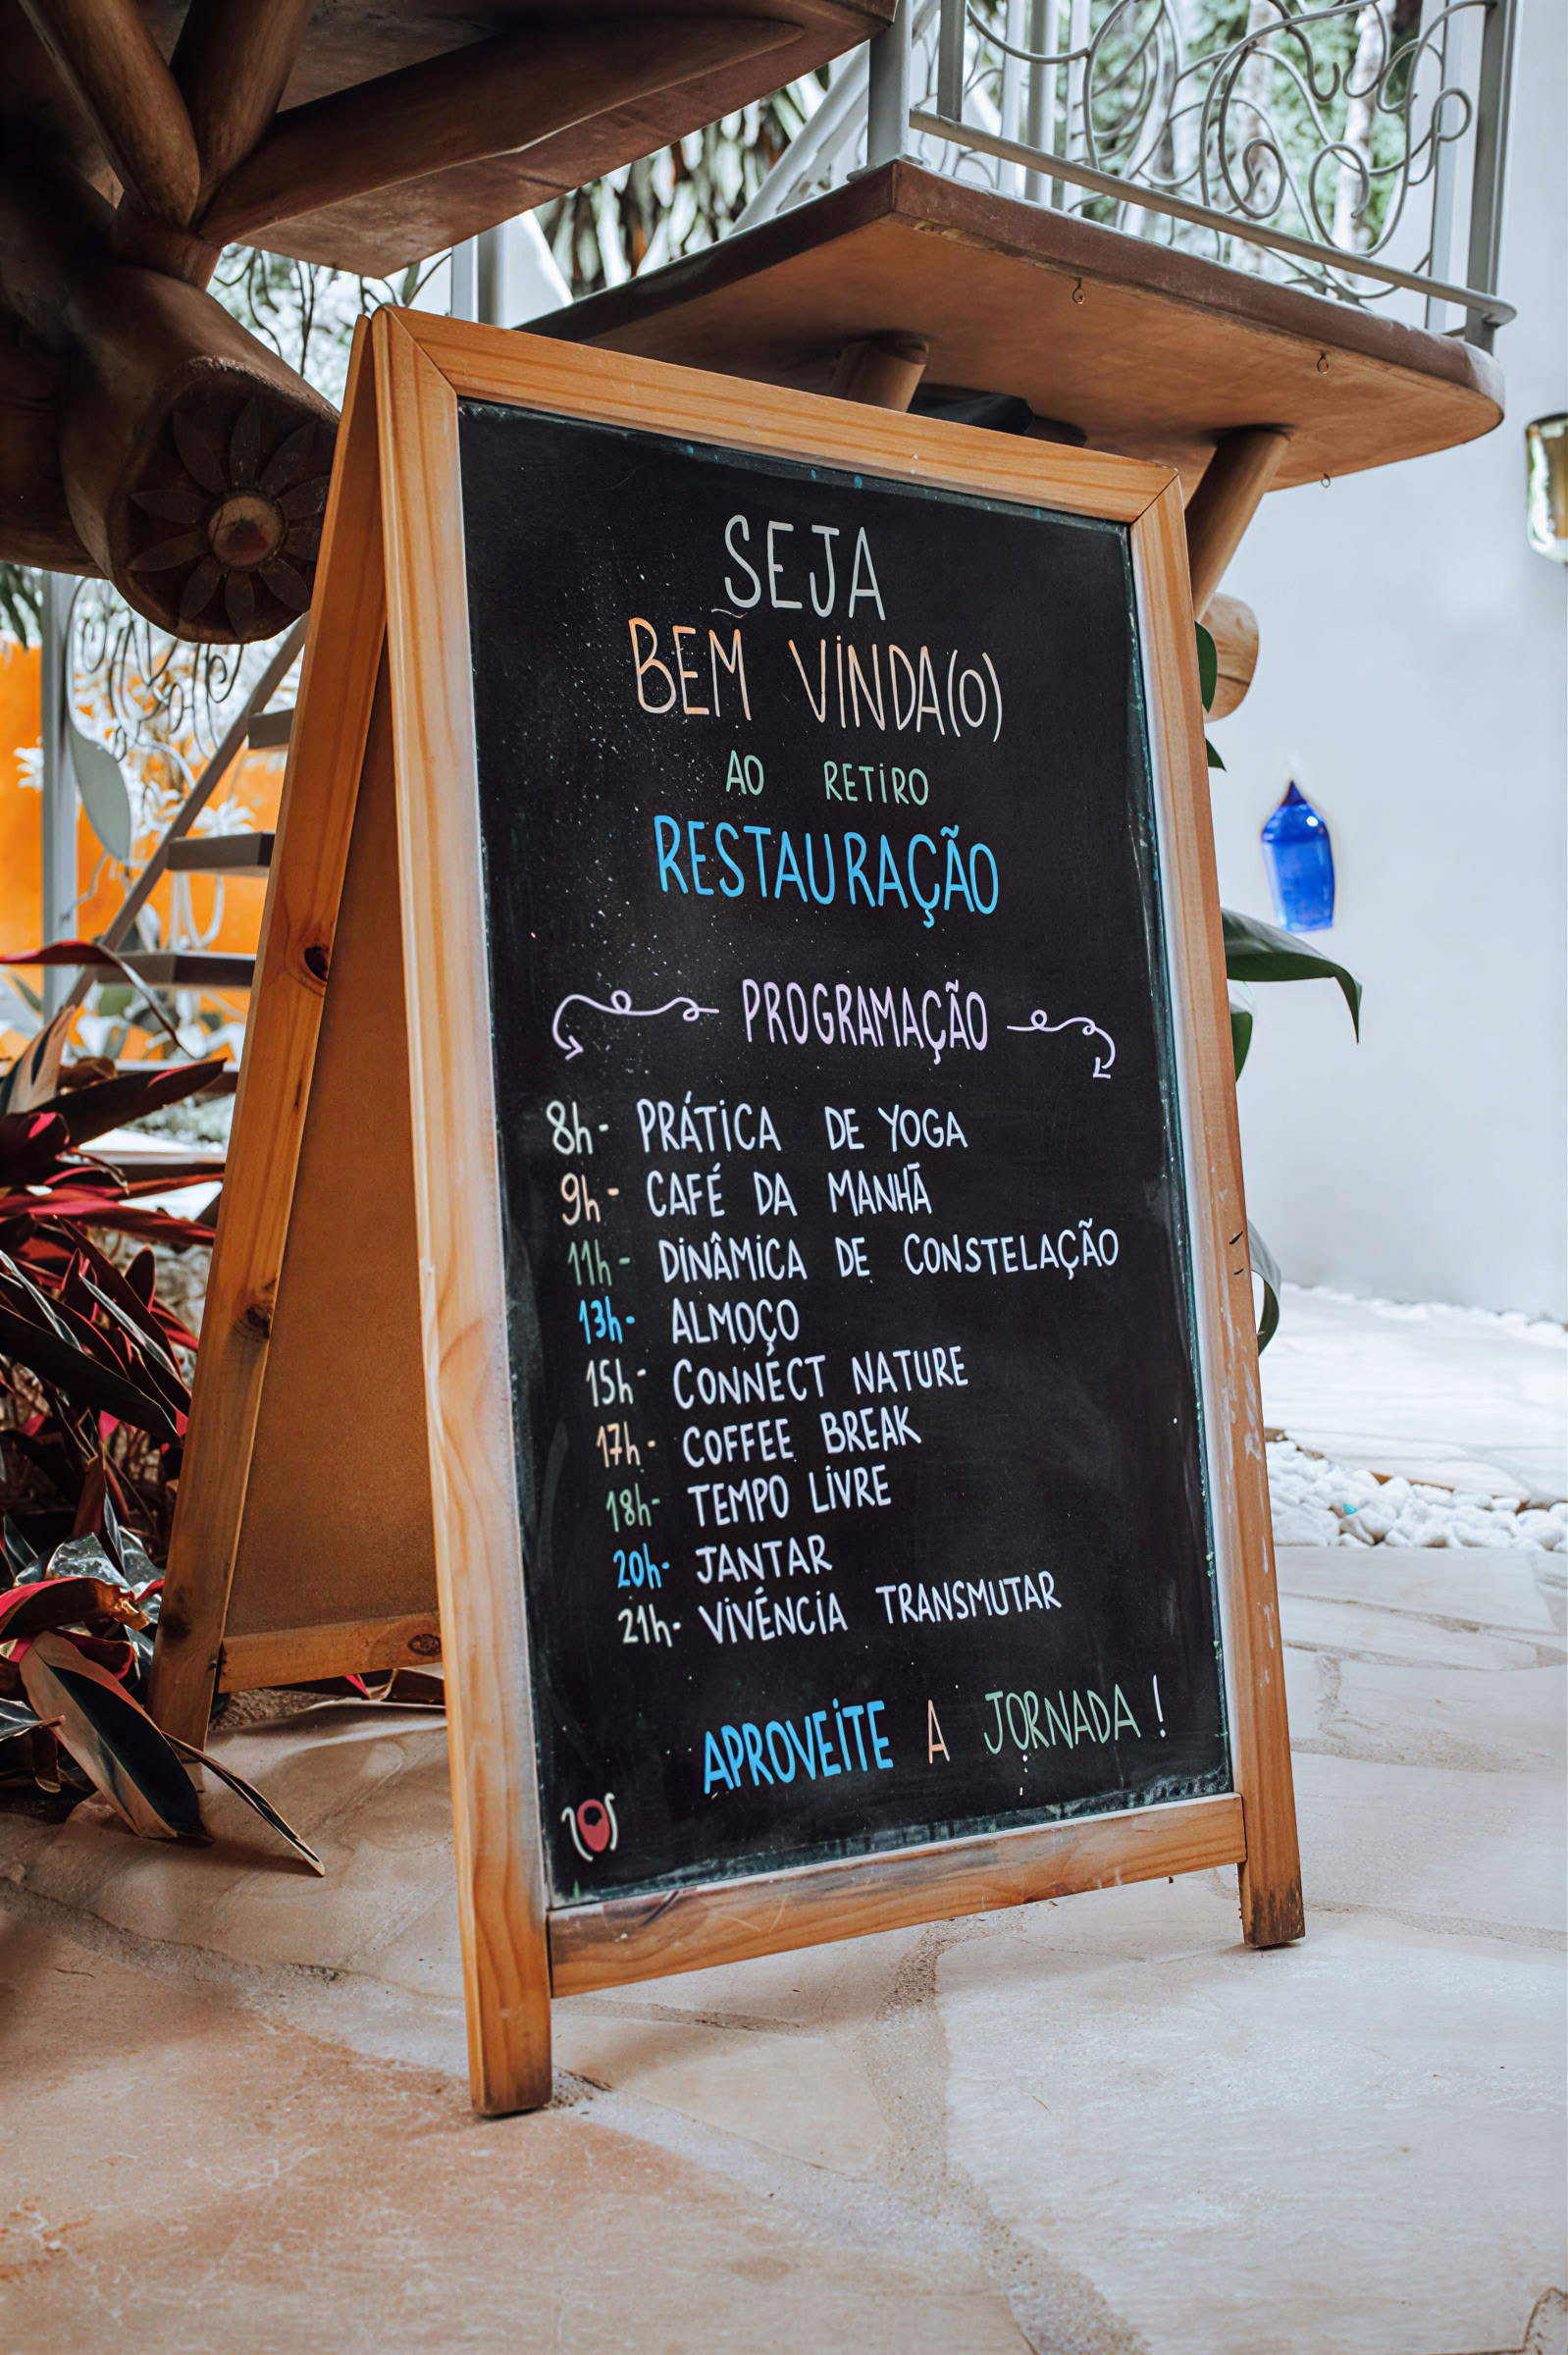 SEJA
BEM VINDA(O)
AO RETIRO
RESTAURAÇÃO
PROGRAMAÇÃO
8h- PRÁTICA DE YOGA
9h- CAFÉ DA MANHÃ
11h- DINÂMICA DE CONSTELAÇÃO
13h- ALMOÇO
15h- CONNECT NATURE
17h- COFFEE BREAK
18h- TEMPO LIVRE
20h- JANTAR
21h- VIVÉNCIA TRANSMUTAR
APROVEITE A JORNADA!